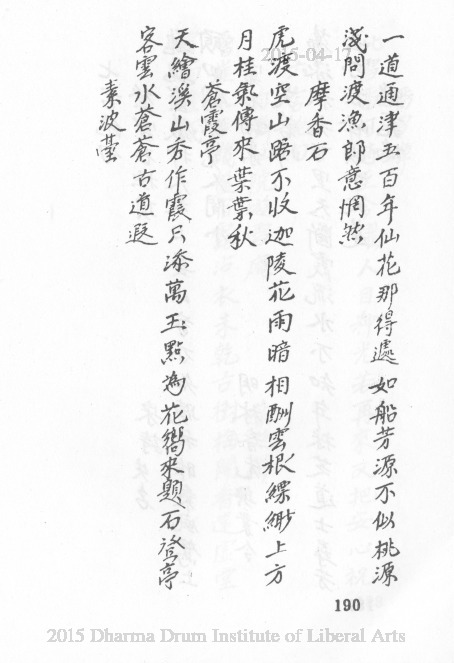 一道通津五百年仙花那得遽如船芳源不似桃源
淺問渡漁郎意惘然
摩香石
虎渡空山路不收迦陵花雨暗相酬雲根縹緲上方
月桂氣傳來葉葉秋
蒼霞亭
天繪溪山秀作霞只添萬玉點為花嚮來題石澄亭
客雲水蒼蒼古道遐
素波
190
2015-04-17
2015 Dharma Drum Institute of Liberal Arts